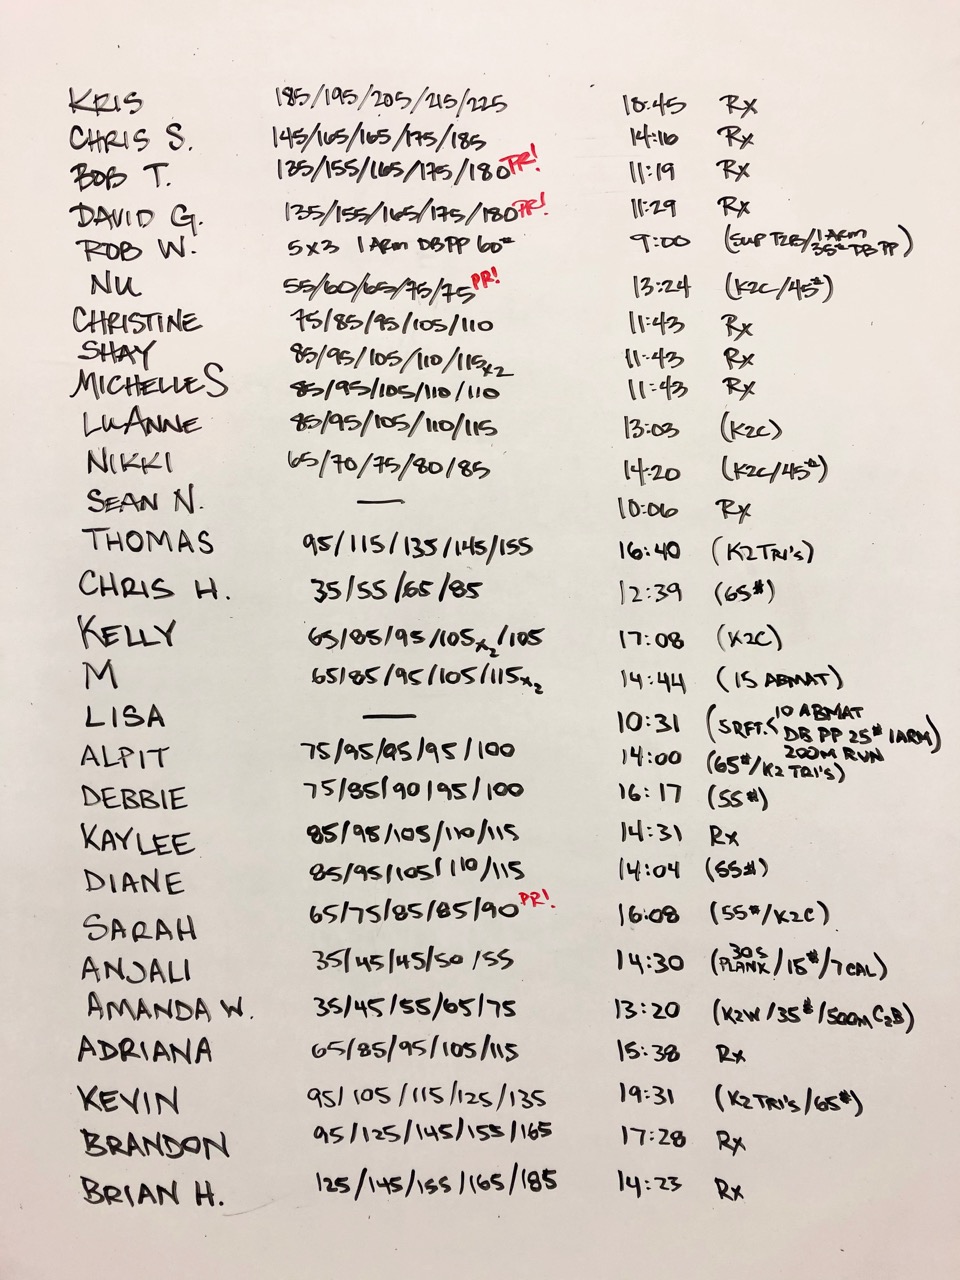 KRIS 185/195/205/215/225 18:45 Rx
CHRIS S. 145/165/165/175/185 14:16 Rx
BOB T. 135/155/165/175/180 PR! 11:19 Rx
DAVID G. 135/155/165/175/180 PR! 11:29 Rx
ROB W. 5x3 1 ARM DB PP 60# 9:00 (SUP T2B/1 ARM 35# DB PP)
NU 55/60/65/75/75 PR! 13:24 (K2C/45#)
CHRISTINE 75/85/95/105/110 11:43 Rx
SHAY 85/95/105/110/115x2 11:43 Rx
MICHELLE S 85/95/105/110/110 11:43 Rx
LUANNE 85/95/105/110/115 13:03 (K2C)
NIKKI 65/70/75/80/85 14:20 (K2C/45#)
SEAN N. — 10:06 Rx
THOMAS 95/115/135/145/155 16:40 (K2TRI'S)
CHRIS H. 35/55/65/85 12:39 (65#)
KELLY 65/85/95/105x2/105 17:08 (K2C)
M 65/85/95/105/115x2 14:44 (15 ABMAT)
LISA — 10:31 (5RFT. < 10 ABMAT DB PP 25# 1ARM 200M RUN)
ALPIT 75/95/95/95/100 14:00 (65#/K2 TRI'S)
DEBBIE 75/85/90/95/100 16:17 (55#)
KAYLEE 85/95/105/110/115 14:31 Rx
DIANE 85/95/105/110/115 14:04 (55#)
SARAH 65/75/85/85/90 PR! 16:08 (55#/K2C)
ANJALI 35/45/45/50/55 14:30 (30S PLANK/15#/7 CAL)
AMANDA W. 35/45/55/65/75 13:20 (K2W/35#/500M C2B)
ADRIANA 65/85/95/105/115 15:38 Rx
KEVIN 95/105/115/125/135 19:31 (K2TRI'S/65#)
BRANDON 95/125/145/155/165 17:28 Rx
BRIAN H. 125/145/155/165/185 14:23 Rx